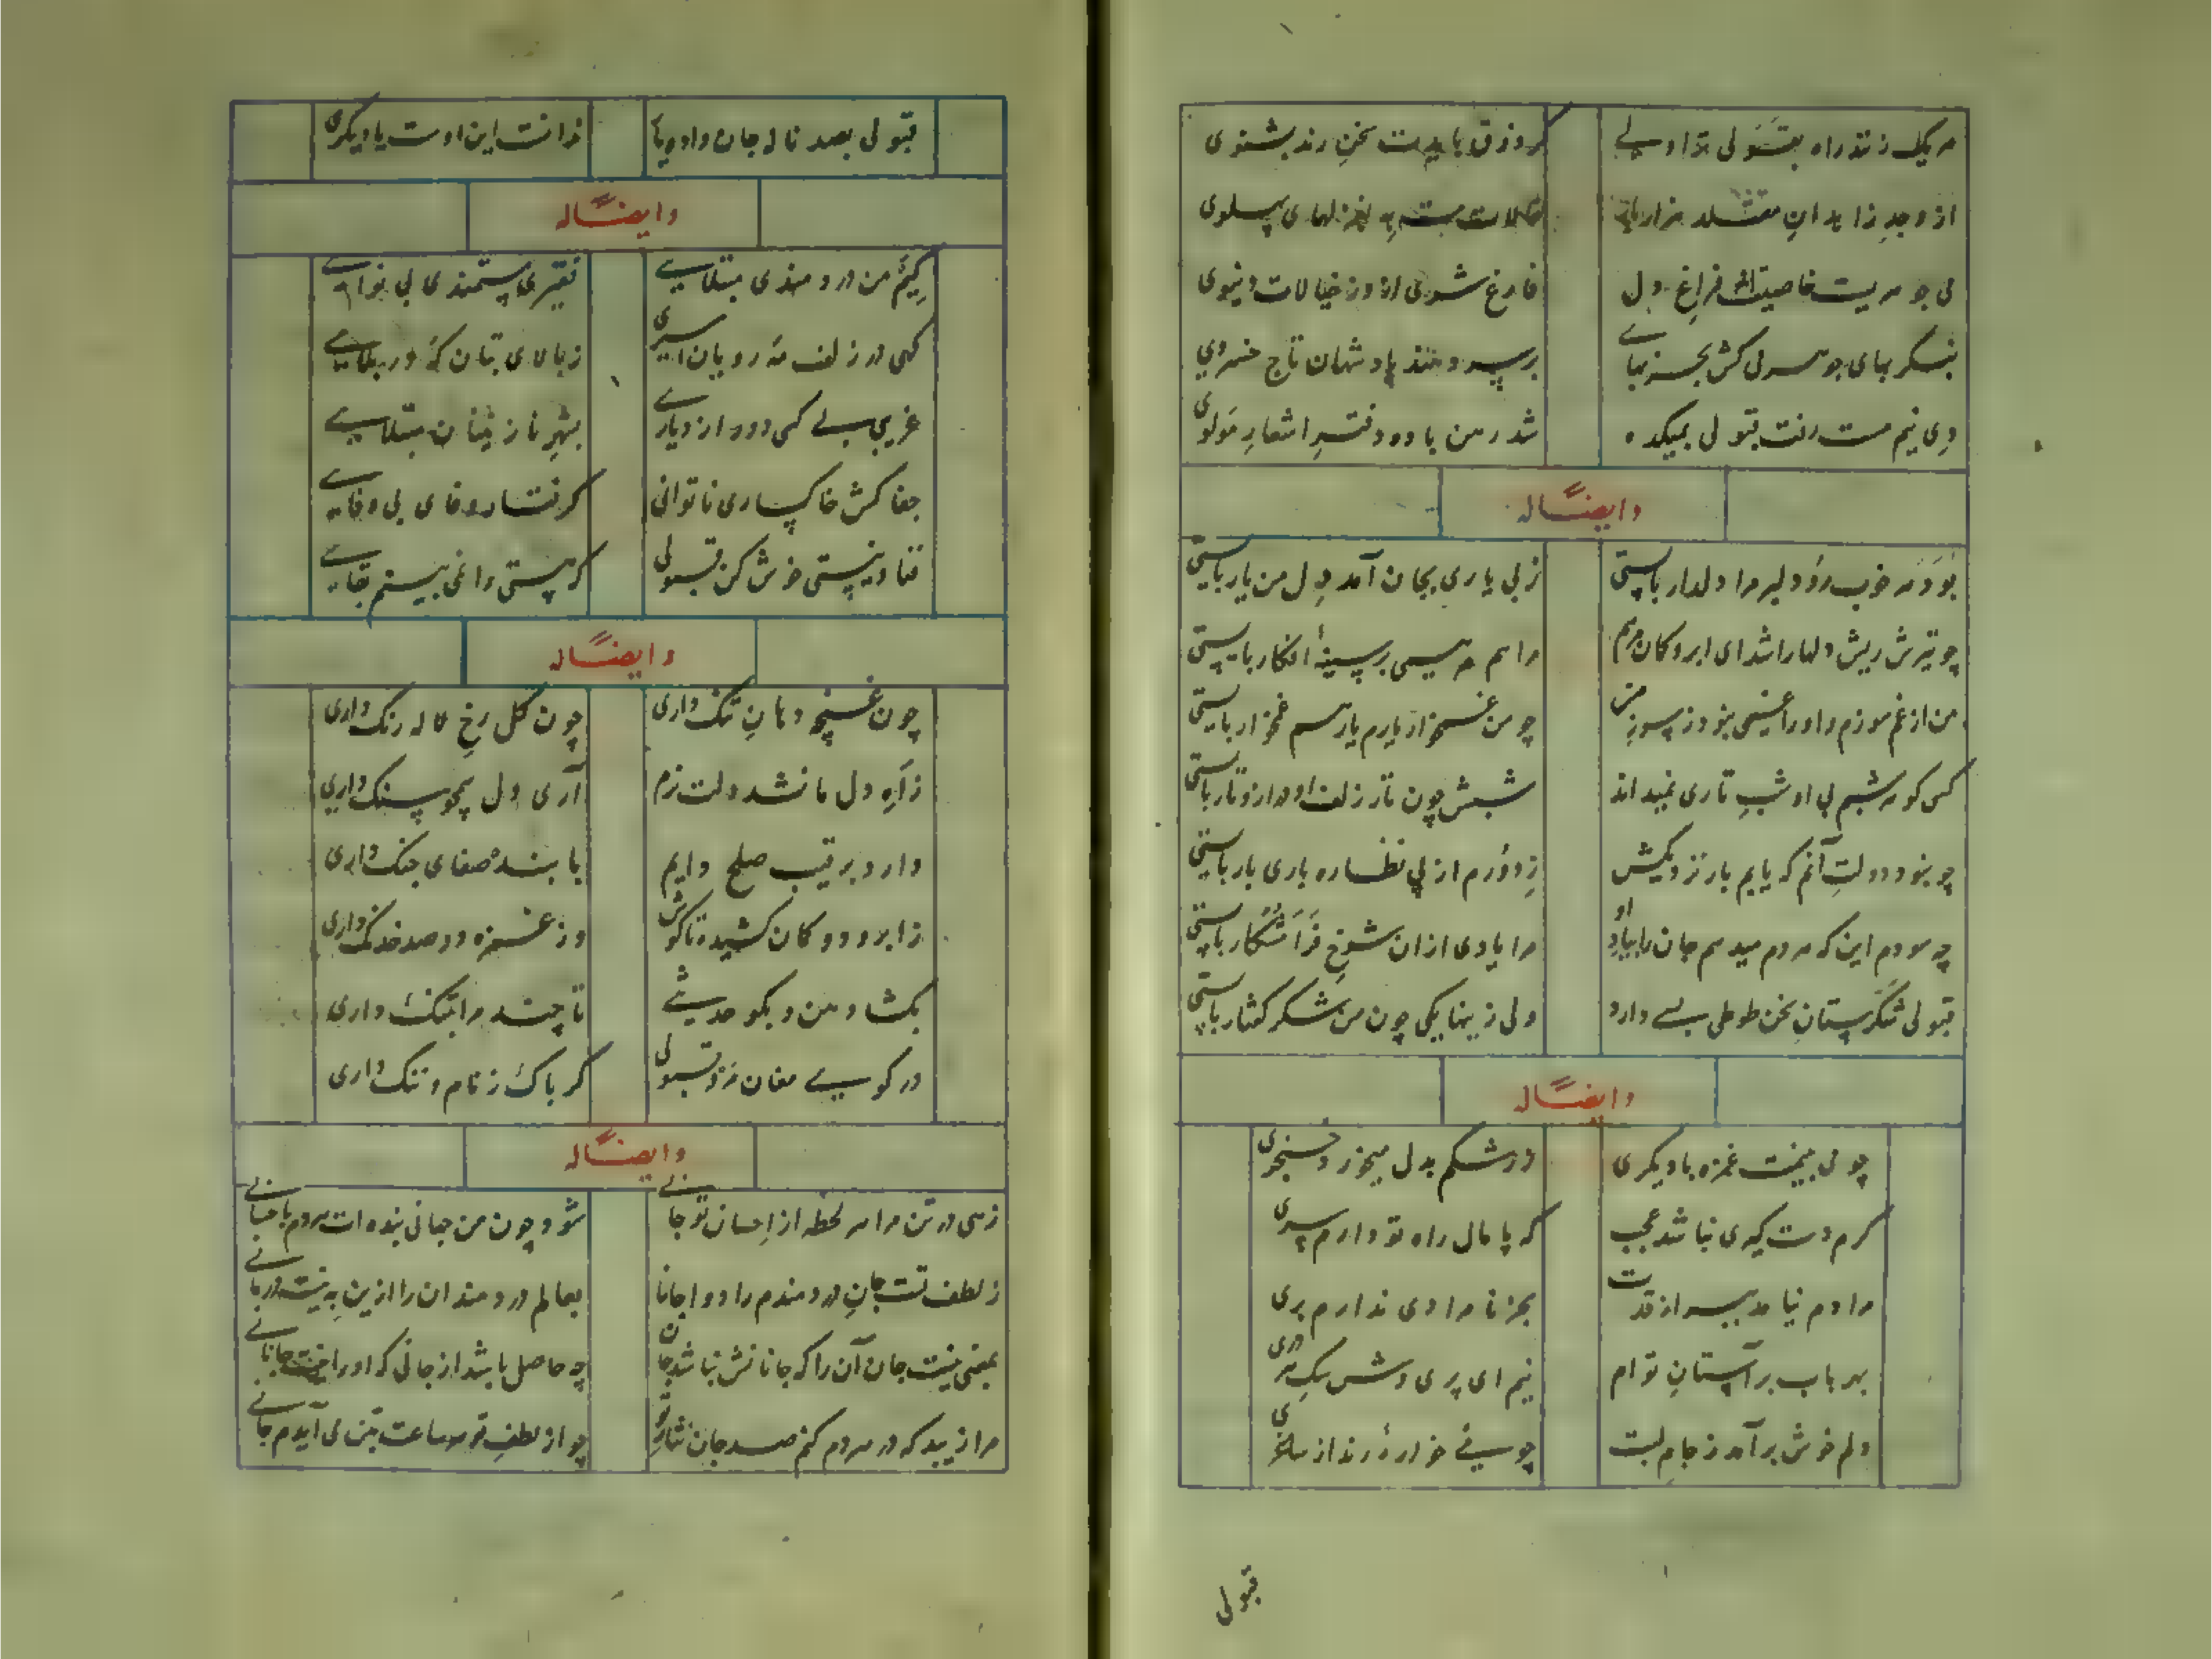 هر یک زند راه بقبولی ترا ولی گر ذوق بایدت سخن رند بشنوی
از وجد زاهدان مقلد هزار بار به غزلهای پهلوی
می جوهریست خاصیتش فراغ دل فارغ شوی ازو ز خیالات دنیوی
بنگر بهای جوهر می کش بجز بهای بر سر دهند پادشهان تاج خسروی
دی نیم مست رفت قبولی بمیکده شد رهن باده دفتر اشعار مولوی
وایضاً له
بود هر خوب رو دلبر مرا دلدار بایستی ز بی یاری بجان آمد دل من یار بایستی
چو تیرش ریش دلها را شد ای ابرو کمان مرهم مرا هم مرهمی بر سینهٔ افکار بایستی
من از غم سوزم و او را غمی نبود ز سوز من چو من غمخوار یارم یار هم غمخوار بایستی
کسی کو هر شبم بی او شب تاری نمیداند شبش چون تار زلف او دراز و تار بایستی
چو نبود دولت آنم که یابم بار نزدیکش ز دورم از پی نظاره باری بار بایستی
چه سودم این که هر دم میدهم جان را بیاد او مرا یادی ازان شوخ فرامشکار بایستی
قبولی شکرستان سخن طوطی بسی دارد ولی زینها یکی چون من شکر گفتار بایستی
وایضاً له
چو می بینمت غمزه با دیگری ز رشکم بدل میخورد خنجری
گرم دست گیری نباشد عجب که پامال راه تو دارم سری
مرا دم نیامد بسر از قدت بجز نامرادی ندارم بری
بهر باب بر آستان توام نیم ای پری وش سگ هر دری
دلم خوش برآمد ز جام لبت چو می خواره رند از ساغری
قبولی
قبولی بصد ناله جان داد و یار ندانست این اوست یا دیگری
وایضاً له
کیم من دردمندی مبتلایی فقیری مستمندی بی نوایی
گهی در زلف مه رویان اسیری ز بالای بتان گه در بلایی
غریبی بی کسی دور از دیاری بشهر نازنینان مبتلایی
جفاکش خاکساری ناتوانی گرفتار وفای بی وفایی
فنا و نیستی خوش کن قبولی که هستی را نمی بینم بقایی
وایضاً له
چون غنچه دهان تنگ داری چون گل رخ لاله رنگ داری
ز آه دل ما نشد دلت نرم آری دل همچو سنگ داری
دارد برقیب صلح دایم با بنده صفای جنگ داری
ز ابرو دو کمان کشیده تا گوش وز غمزه دو صد خدنگ داری
بگشا دهن و بگو حدیثی تا چند مرا بتنگ داری
در کوی مغان مرو قبولی گر باک ز نام و ننگ داری
وایضاً له
زهی در تن مرا هر لحظه از احسان تو جانی شود چون من جهانی بنده ات هر دم باحسانی
ز لطف تست جان دردمندم را دوا جانا بعالم دردمندان را ازین به نیست درمانی
بمعنی نیست جان آن را که جانانش نباشد جان چه حاصل باشد از جانی که او را نیست جانانی
مرا زیبد که در هر دم کنم صد جان نثار تو چو از لطف تو هر ساعت بتن می آیدم جانی